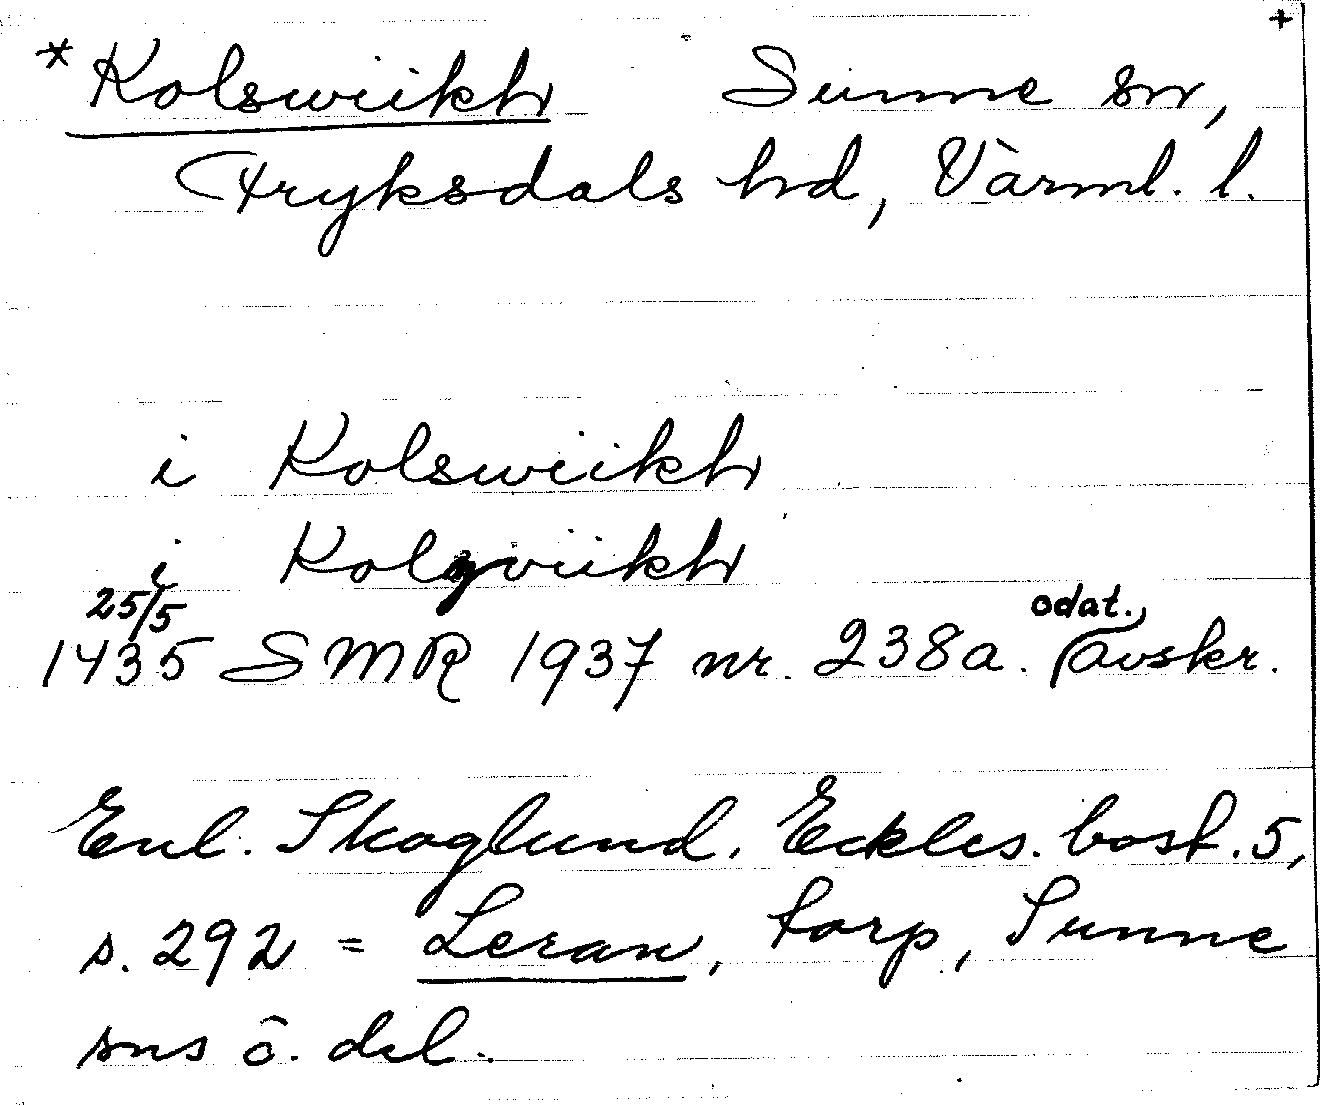 +
*Kolswiikh Sunne sn,
Fryksdals hd, Värml. l.
i Kolswiikh
i Kolzviikh
25/5 odat.
1435 SMR 1937 nr. 238a. avskr.
Enl. Skoglund, Eckles. bost. 5,
s. 292 = Leran, torp, Sunne
sns ö. del.